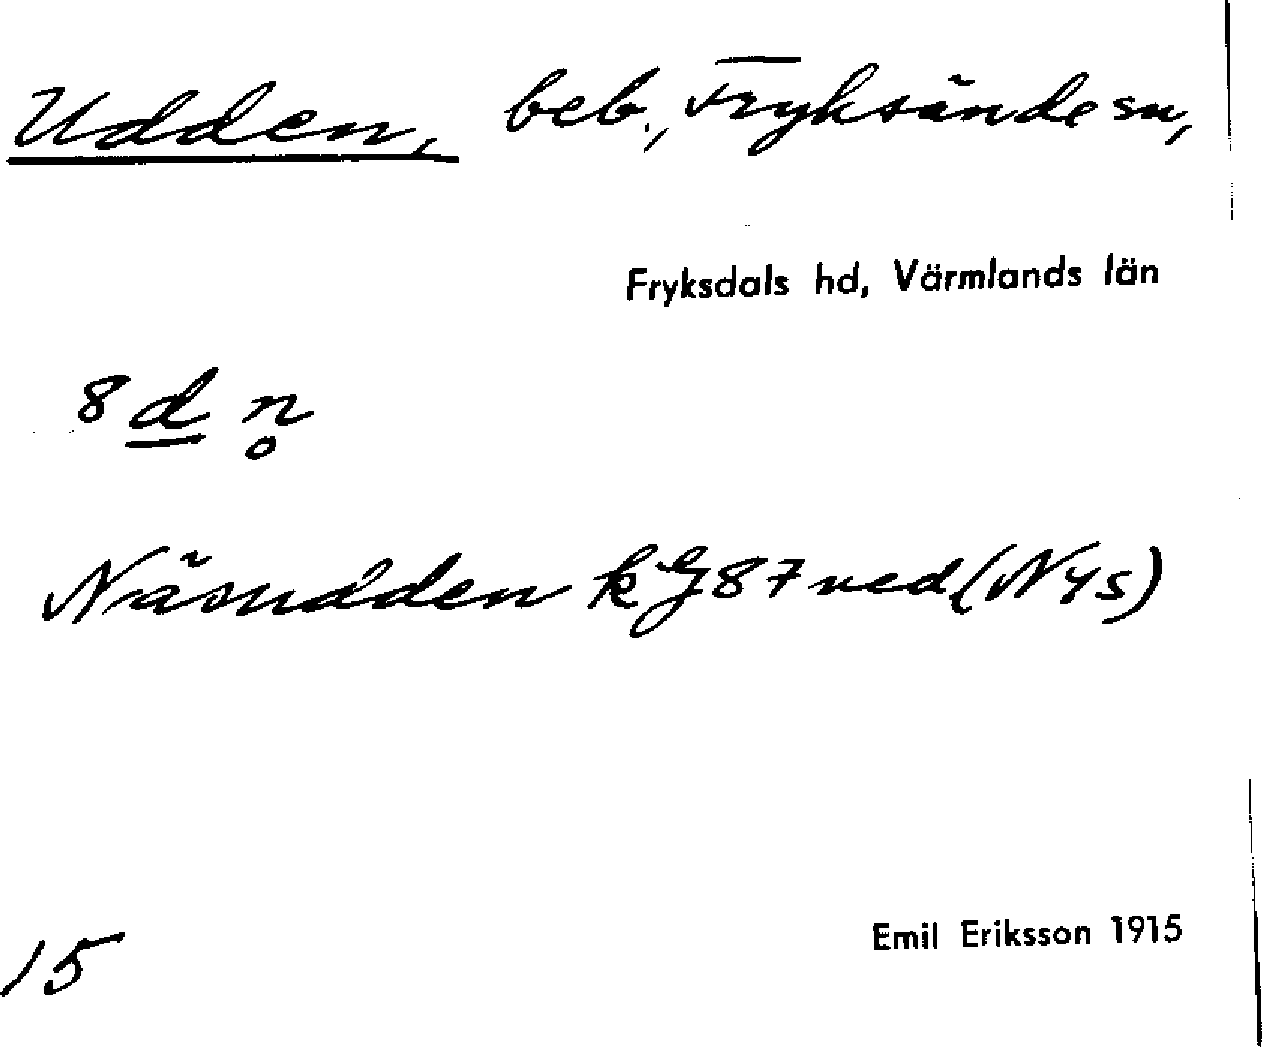 Udden, beb., Fryksände sn,
Fryksdals hd, Värmlands län
8 d n̥
Näsudden kG87 ved (NYs)
15
Emil Eriksson 1915